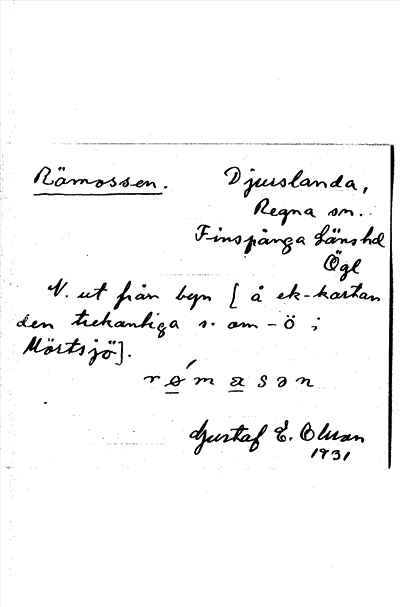 Rämossen.
Djurslanda,
Regna sn.
Finspånga Länshd
Ögl
N. ut från byn [å ek-kartan
den trekantiga s. om -ö i
Mörtsjö].
rǿmasən
Gustaf E. Olsson
1931